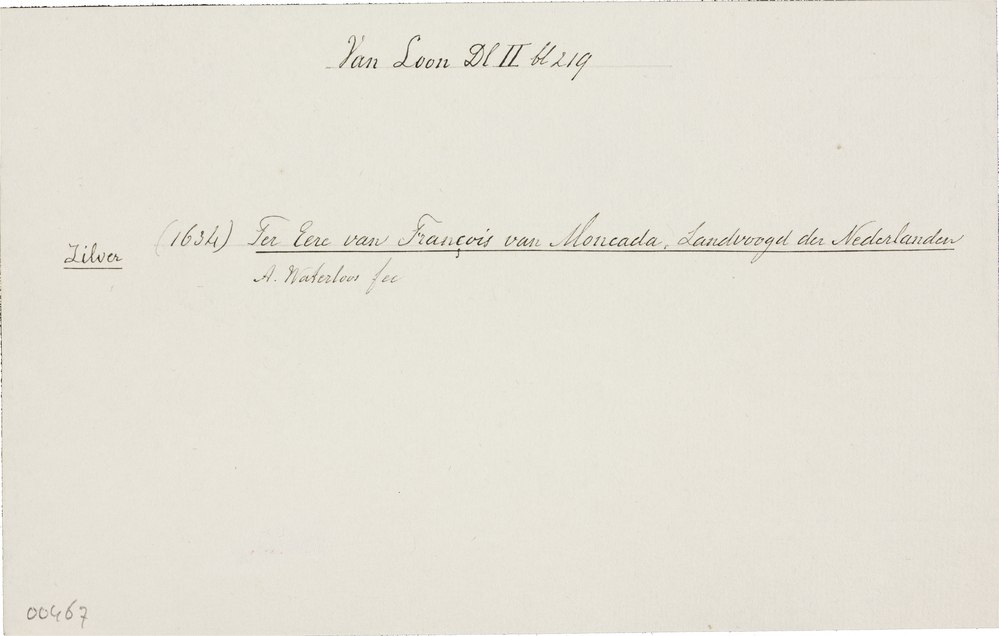 Van Loon Dl II bl 219
(1634) Ter Eere van François van Moncada, Landvoogd der Nederlanden
Zilver
A. Waterloos fec
00467